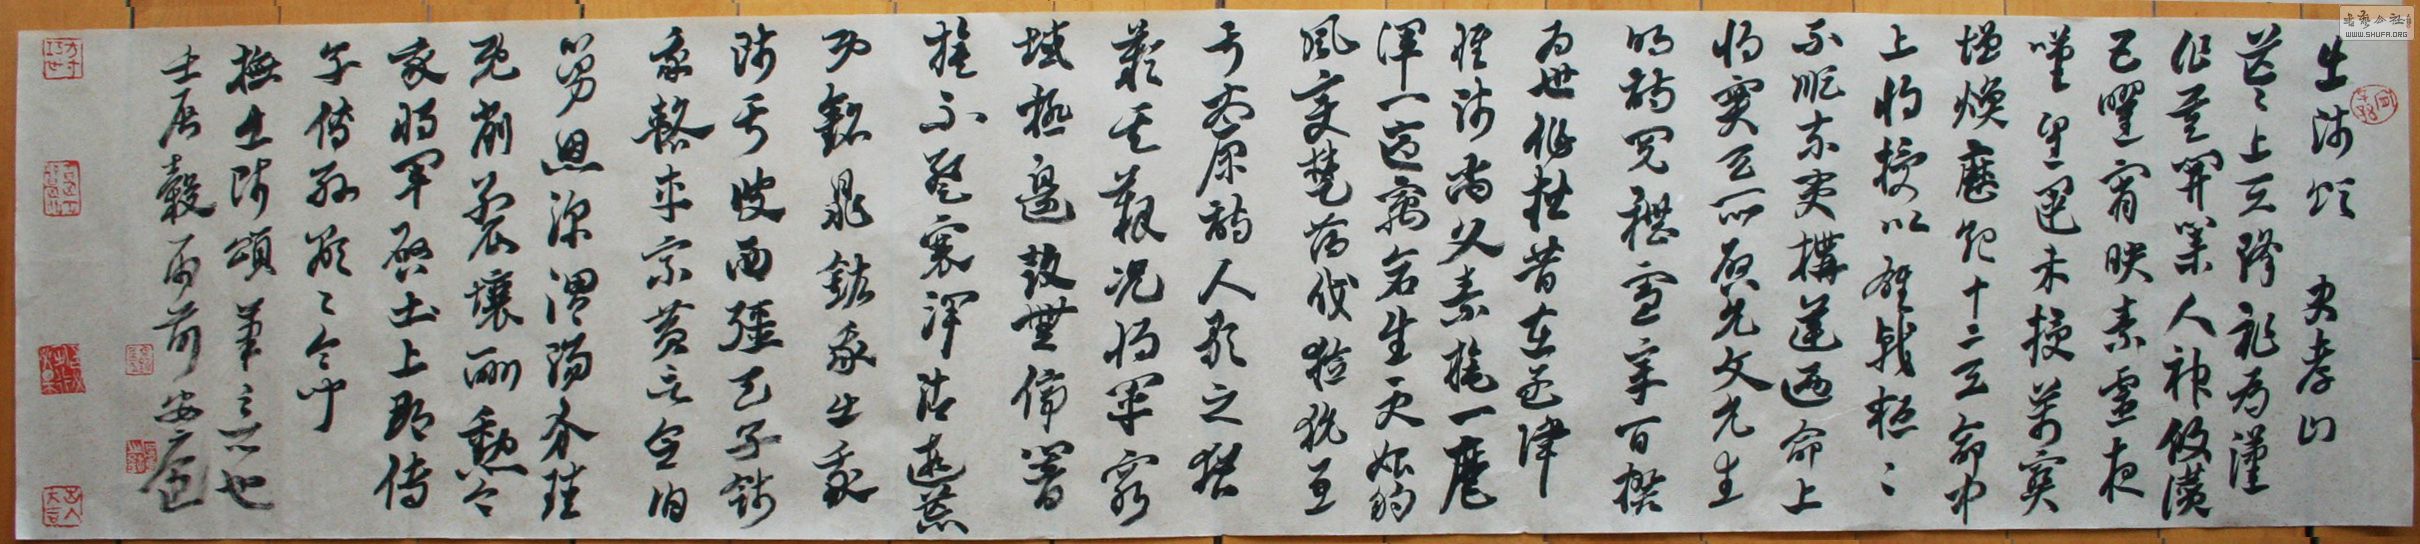 出師頌 史孝山
茫〻上天降祚為漢
作基開業人神攸讃
五曜宵映素靈夜
嘆皇運未授萬寶
增煥歷紀十二天命中
上將授以雄戟桓〻
不順東夷構逆西命上
將實天所啟允文允武
明詩閱禮憲章百揆
為世作楷昔在孟津
惟師尚父素旄一麾
渾一區寓蒼生更始朔
風變楚薄伐獫狁至
于太原詩人歌之猶
歎其艱況將軍窮
域極邊鼓無停響
旌不蹔褰澤沾遐荒
功銘鼎鉉我出我
師于彼西疆天子餞
我輅車乘黃言念伯
舅恩深渭陽介珪
既削裂壤酬勳今
我將軍啟土上郡傳
子傳孫顯〻令問
撫出師頌筆意也
书艺公社
WWW.SHUFA.ORG